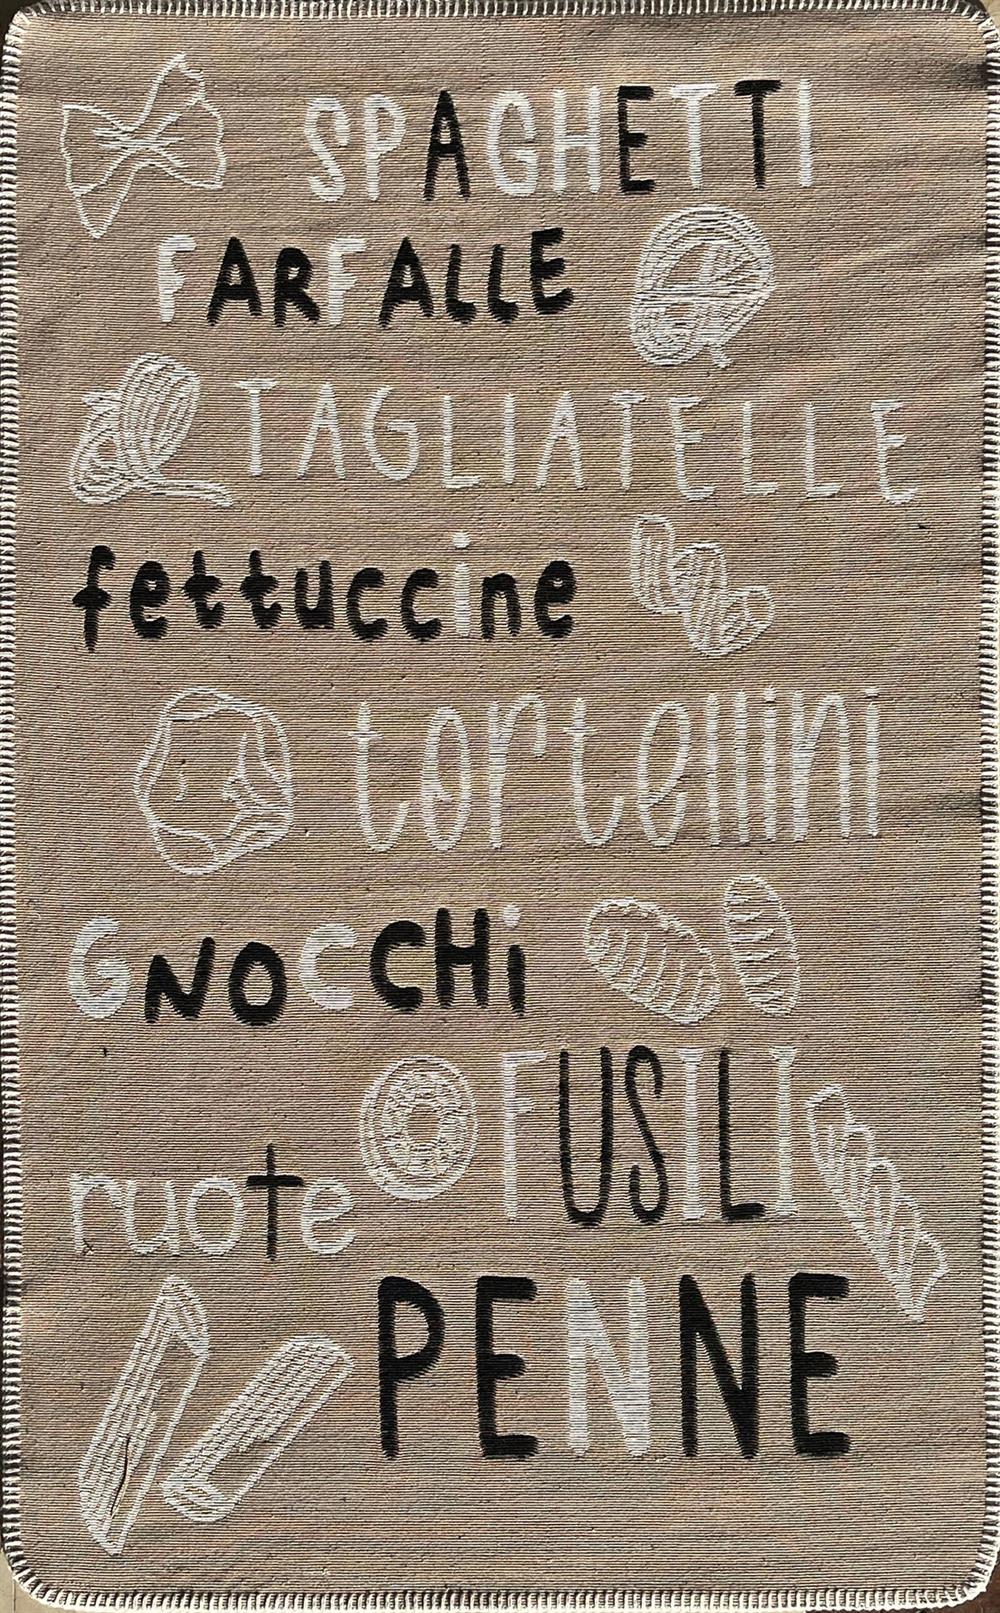 SPAGHETTI
FARFALLE
TAGLIATELLE
fettuccine
tortellini
GNOCCHi
FUSILI
ruote
PENNE